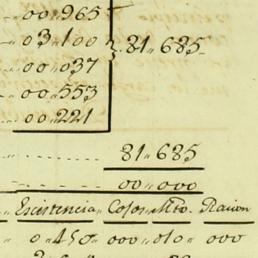 00„965
03„100 } 81„685
00„037
00„553
00„221
81„685
00„000
Existencia Cofos Mto. Racion
0„450 000„010 000